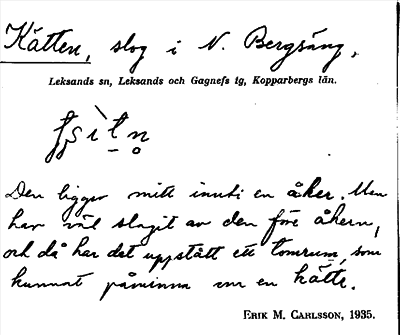 Kätten, slog i N. Bergsäng.
Leksands sn, Leksands och Gagnefs tg, Kopparbergs län.
Den ligger mitt inuti en åker. Man
har väl slagit av den före åkern,
och då har det uppstått ett tomrum, som
kunnat påminna om en kätte.
ERIK M. CARLSSON, 1935.